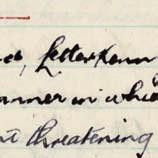 Letterkenn
anner in whic
t threatening